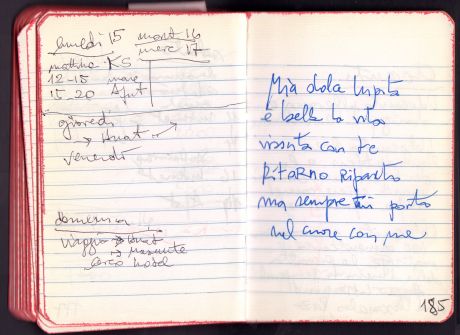 lunedì 15 mart 16
merc 17
mattina KS
12-15 mare
15-20
giovedì
→ Huat →
venerdì
domenica
viaggio → Huat
→
cerco hotel
Mia dolce
è bella la vita
vissuta con te
RITORNO Riparto
ma sempre ti porto
nel cuore con me
185